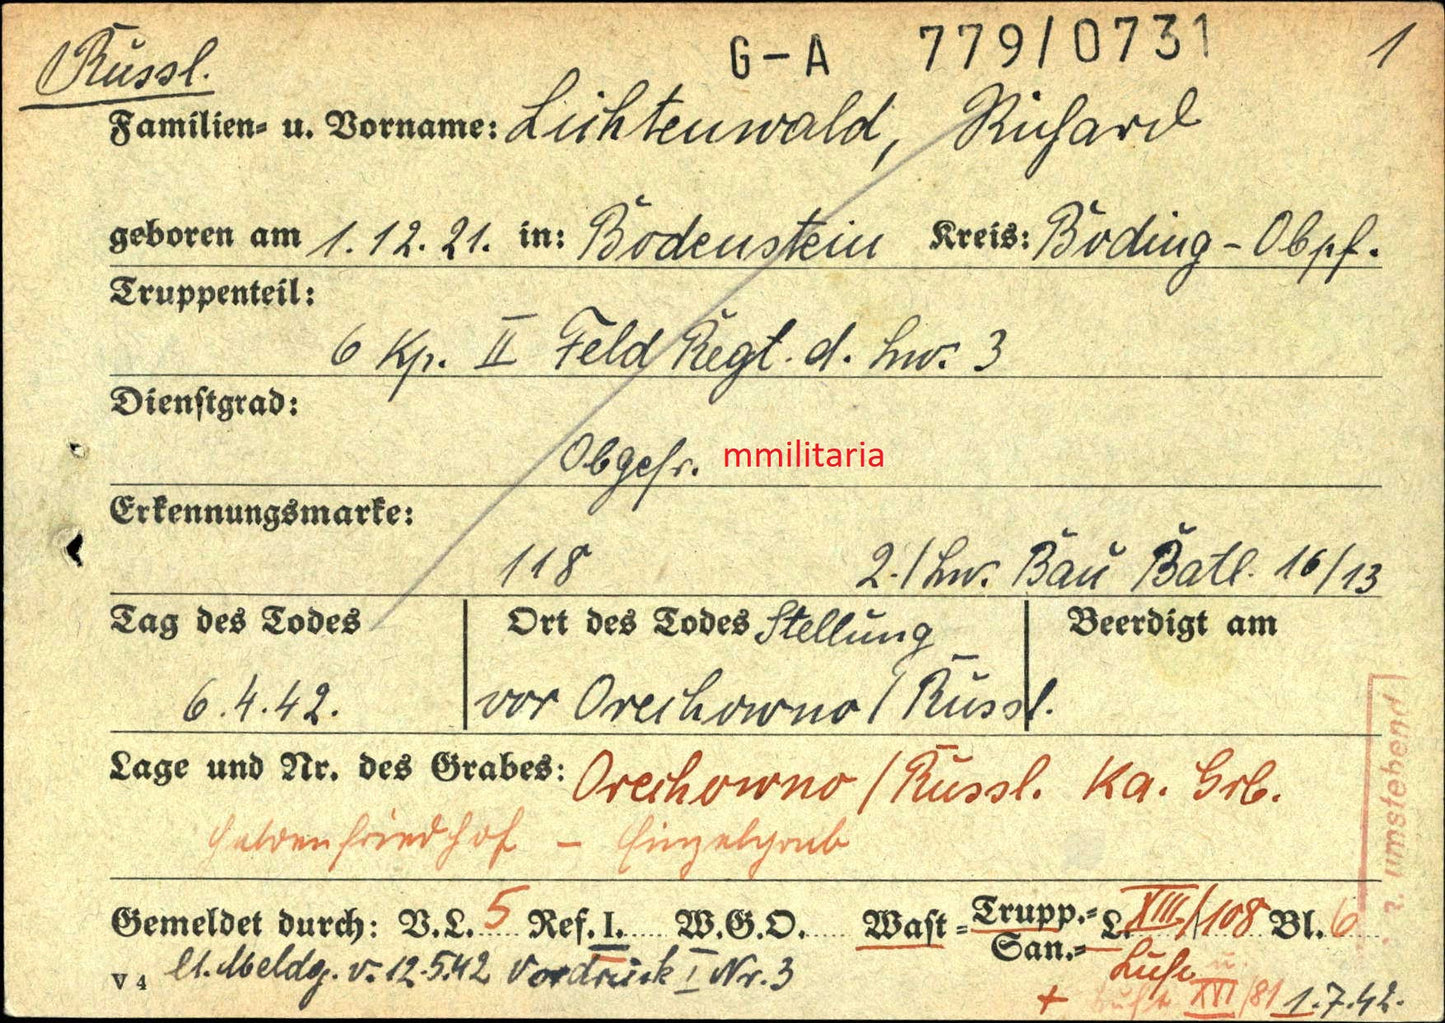 G-A 779/0731 1
Russl.
Familien- u. Vorname: Lichtenwald, Richard
geboren am 1.12.21. in: Bodenstein Kreis: Roding - Obpf.
Truppenteil:
6 Kp. II Feld Regt. d. Lw. 3
Dienstgrad:
Obgefr.
mmilitaria
Erkennungsmarke:
118 2./Lw. Bau Batl. 16/13
Tag des Todes Ort des Todes Stellung Beerdigt am
6.4.42. vor Orechowno / Russl.
Lage und Nr. des Grabes: Orechowno / Russl. Ka. Grb.
Heldenfriedhof - Einzelgrab
z. umstehend
Gemeldet durch: V.L. 5 Ref. I. W.G.O. Wast = Trupp.- L. XIII/108 Bl. 6
San.- Luft
V 4 Meldg. v. 12.5.42 Vordruck I Nr. 3
+ Luft XVI/81 1.7.42.